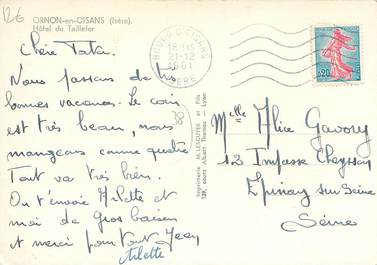 12€
ORNON-en-OISANS (Isère).
Hôtel du Taillefer
Chère Tata.
Nous passons de très
bonnes vacances. Le coin
est très beau, nous
mangeons comme quatre
Tout va très bien.
On t'envoie Arlette et
moi de Gros baisers
et merci pour tout
Arlette
38
Imprimerie M. LESCUYER et Fils
129, cours Albert Thomas - Lyon
BOURG D'OISANS
18H15
21-12
1961
ISERE
0,20
Melle Alice
12 Impasse
Epinay sur Seine
Seine